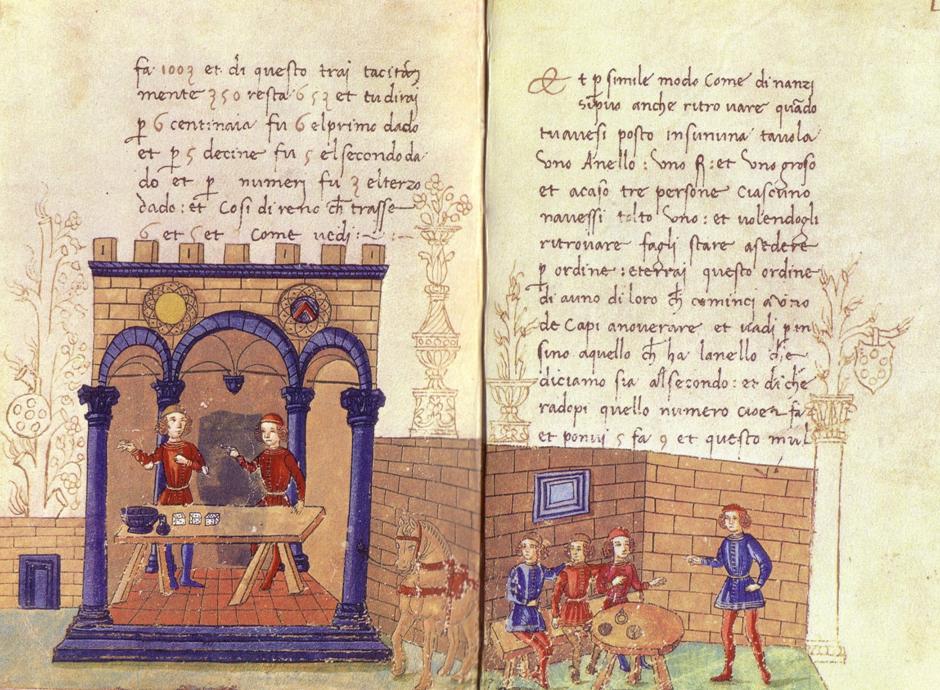 fa 1003 et di questo trai tacitam
mente 350 resta 653 et tu dirai
p 6 centinaia fu 6 el primo dado
et p 5 decine fu 5 el secondo da
do et p numeri fu 3 el terzo
dado: et Cosi direno ch trasse
6 et 5 et come vedi:~:~
Et p simile modo Come dinanzi
si puo anche ritrovare quādo
tu avesi posto in su nuna tavola
uno Anello: uno F: et uno groso
et acaso tre persone Ciascuno
navessi tolto uno: et volendogli
ritrovare fagli stare asedere
p ordine: et questo ordine
di a uno di loro ch cominci a
de Capi anoverare et vadi pin
sino aquello ch ha lanello che
diciamo sia al secondo: et di che
radopi quello numero cioe fa
et ponvi 5 fa 9 et questo mul